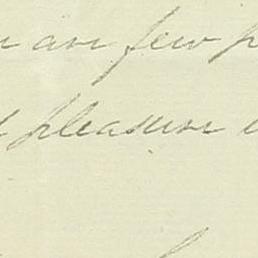 are few
pleasure